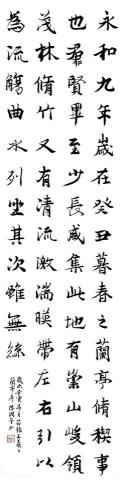 永和九年歲在癸丑暮春之蘭亭脩稧事
也羣賢畢至少長咸集此地有崇山峻領
茂林脩竹又有清流激湍暎帶左右引以
為流觴曲水列坐其次雖無絲
歲次節錄王羲之
蘭亭序